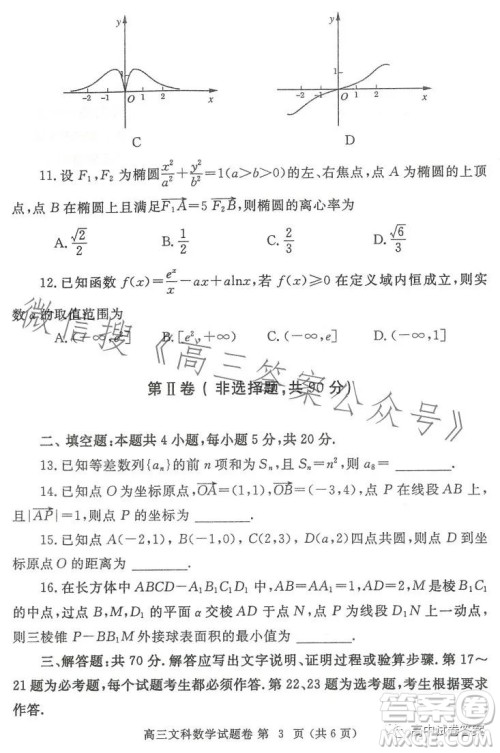 y
1
-2 -1 O 1 2 x
C
y
1
-2 -1 O 1 2 x
D
11.设 F₁,F₂ 为椭圆 x²/a²+y²/b²=1(a>b>0)的左、右焦点,点 A 为椭圆的上顶
点,点 B 在椭圆上且满足 F₁A=5 F₂B,则椭圆的离心率为
A.√2/2 B.1/2 C.2/3 D.√6/3
12.已知函数 f(x)=eˣ/x-ax+alnx,若 f(x)⩾0 在定义域内恒成立,则实
数 a 的取值范围为
A.(-∞,e²] B.[e²,+∞) C.(-∞,e] D.[e,+∞)
第Ⅱ卷( 非选择题,共 90 分)
二、填空题:本题共 4 小题,每小题 5 分,共 20 分.
13.已知等差数列{aₙ}的前 n 项和为 Sₙ,且 Sₙ=n²,则 a₈=
14.已知点 O 为坐标原点,OA=(1,1),OB=(-3,4),点 P 在线段 AB 上,
且|AP|=1,则点 P 的坐标为
15.已知点 A(-2,1),B(-1,0),C(2,3),D(a,2)四点共圆,则点 D 到坐
标原点 O 的距离为
16.在长方体中 ABCD-A₁B₁C₁D₁ 中 AB=1,AD=AA₁=2,M 是棱 B₁C₁
的中点,过点 B,M,D₁ 的平面 α 交棱 AD 于点 N,点 P 为线段 D₁N 上一动点,
则三棱锥 P-BB₁M 外接球表面积的最小值为
三、解答题:共 70 分.解答应写出文字说明、证明过程或演算步骤.第 17~
21 题为必考题,每个试题考生都必须作答.第 22、23 题为选考题,考生根据要求
作答.
高三文科数学试题卷 第 3 页(共 6 页)
微信搜《高三答案公众号》
高中试卷答案